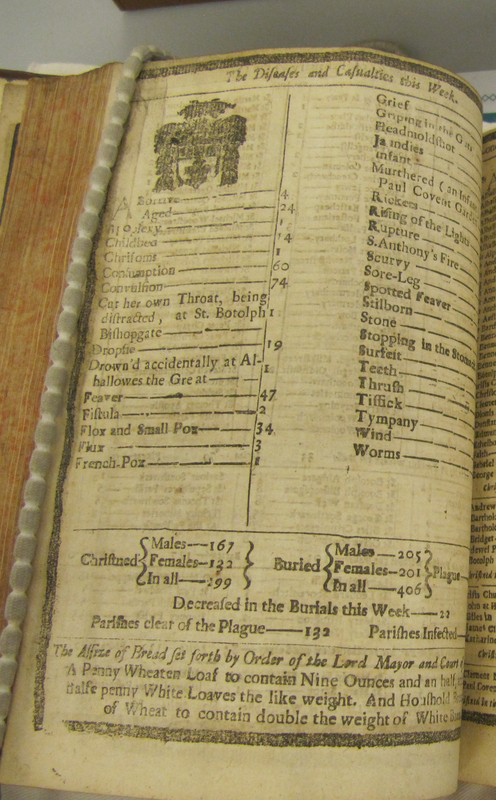 The Diseases and Casualties this Week.
Abortive 4
Aged 24
Apoplexy 1
Childbed 14
Chrisoms 1
Consumption 60
Convulsion 74
Cut her own Throat, being
distracted, at St. Botolph 1
Bishopgate
Dropsie 19
Drown'd accidentally at Al-
hallowes the Great 1
Feaver 47
Fistula 2
Flox and Small Pox 34
Flux 3
French-Pox 1
Grief
Griping in the Guts
Headmoldshot
Jaundies
Infants
Murthered (an Infan
Paul Covent Gard
Rickets
Rising of the Lights
Rupture
S. Anthony's Fire
Scurvy
Sore-Leg
Spotted Feaver
Stilborn
Stone
Stopping in the Stomach
Surfeit
Teeth
Thrush
Tissick
Tympany
Wind
Worms
Christned { Males—167 Females—132 In all—299 }
Buried { Males—205 Females—201 In all—406 } Plague
Decreased in the Burials this Week—22
Parishes clear of the Plague—132 Parishes Infected
The Assize of Bread set forth by Order of the Lord Mayor and Court
A Penny Wheaten Loaf to contain Nine Ounces and an half,
halfe penny White Loaves the like weight. And Houshold
of Wheat to contain double the weight of White